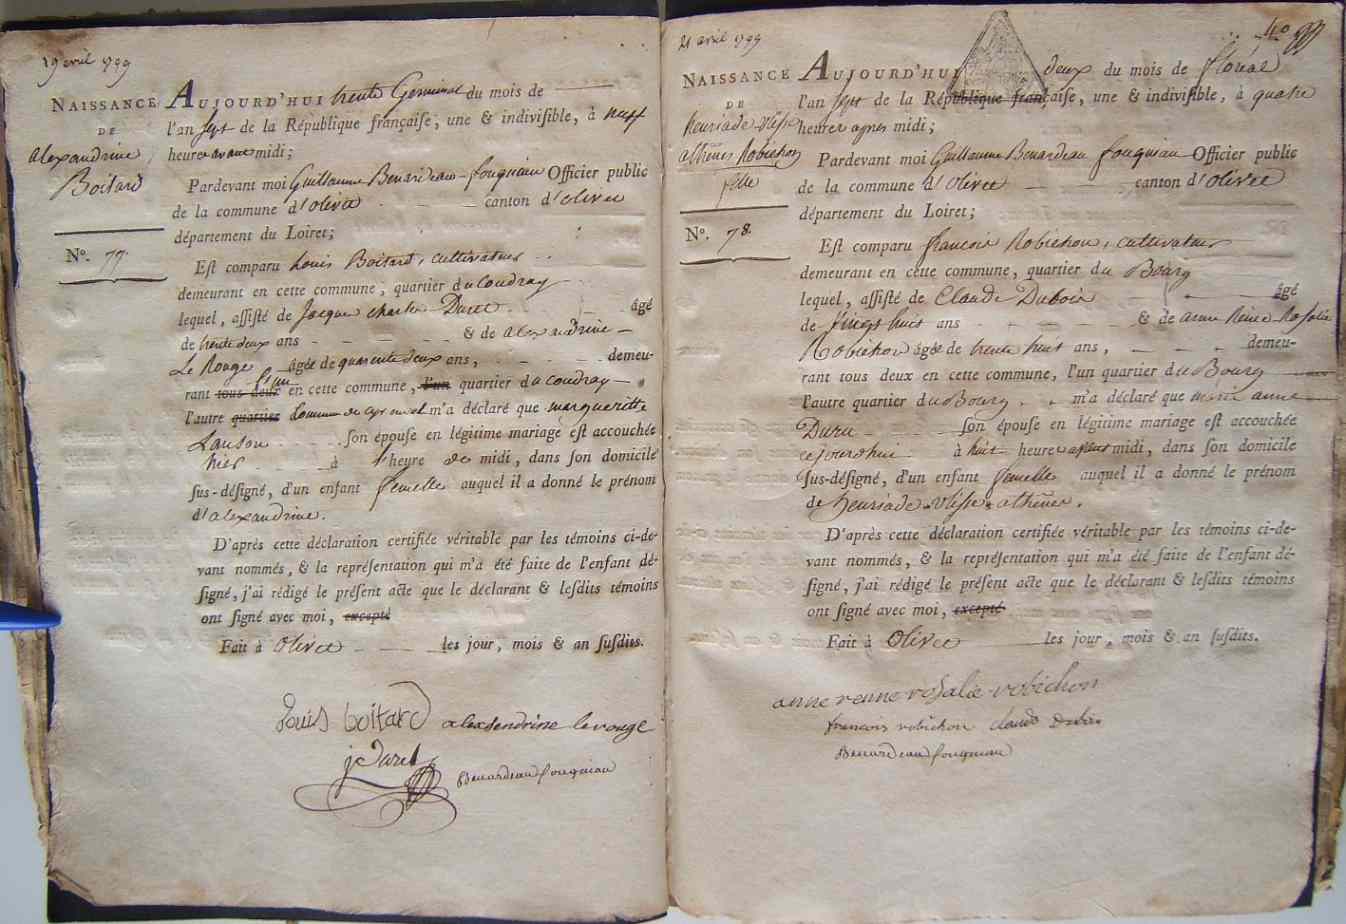 19 avril 1799
NAISSANCE
DE
alexandrine
Boitard
N°. 77.
AUJOURD'HUI trente Germinal du mois de
l'an sept de la République françaiſe, une & indiviſible, à neuf
heure avant midi;
Pardevant moi Guillaume Benardeau-fougniau Officier public
de la commune d'olivet canton d'olivet
département du Loiret;
Eſt comparu Louis Boitard, cultivateur
demeurant en cette commune, quartier du Coudray
lequel, aſſiſté de Jacque charle Duret âgé
de trente deux ans & de alexandrine
Le Rouge âgée de quarente deux ans, demeu-
rant tous deux l'un en cette commune, l'un quartier du coudray
l'autre quartier m'a déclaré que margueritte
Lanson ſon épouſe en légitime mariage eſt accouchée
hier à heure de midi, dans ſon domicile
ſus-déſigné, d'un enfant femelle auquel il a donné le prénom
d'alexandrine.
D'après cette déclaration certifiée véritable par les témoins ci-de-
vant nommés, & la repréſentation qui m'a été faite de l'enfant dé-
ſigné, j'ai rédigé le préſent acte que le déclarant & leſdits témoins
ont ſigné avec moi, excepté
Fait à Olivet les jour, mois & an ſuſdits.
Louis boitard alexsendrine le rouge
j c Duret
Benardeau fougniau
21 avril 1799
40
NAISSANCE
DE
athénes Robichon
fille
N°. 78.
AUJOURD'HUI deux du mois de floréal
l'an sept de la République françaiſe, une & indiviſible, à quatre
heures apres midi;
Pardevant moi Guillaume Benardeau fougniau Officier public
de la commune d'Olivet canton d'Olivet
département du Loiret;
Eſt comparu françois Robichon, cultivateur
demeurant en cette commune, quartier du Bourg
lequel, aſſiſté de Claude Dubois âgé
de Vingt huit ans & de anne Reine Rosalie
Robichon âgée de trente huit ans, demeu-
rant tous deux en cette commune, l'un quartier du Bourg
l'autre quartier du Bourg m'a déclaré que marie anne
Duru ſon épouſe en légitime mariage eſt accouchée
cejourdhui à huit heure apres midi, dans ſon domicile
ſus-déſigné, d'un enfant femelle auquel il a donné le prénom
de
D'après cette déclaration certifiée véritable par les témoins ci-de-
vant nommés, & la repréſentation qui m'a été faite de l'enfant dé-
ſigné, j'ai rédigé le préſent acte que le déclarant & leſdits témoins
ont ſigné avec moi, excepté
Fait à Olivet les jour, mois & an ſuſdits.
anne renne rosalie robichon
francois robichon claude dubois
Benardeau fougniau